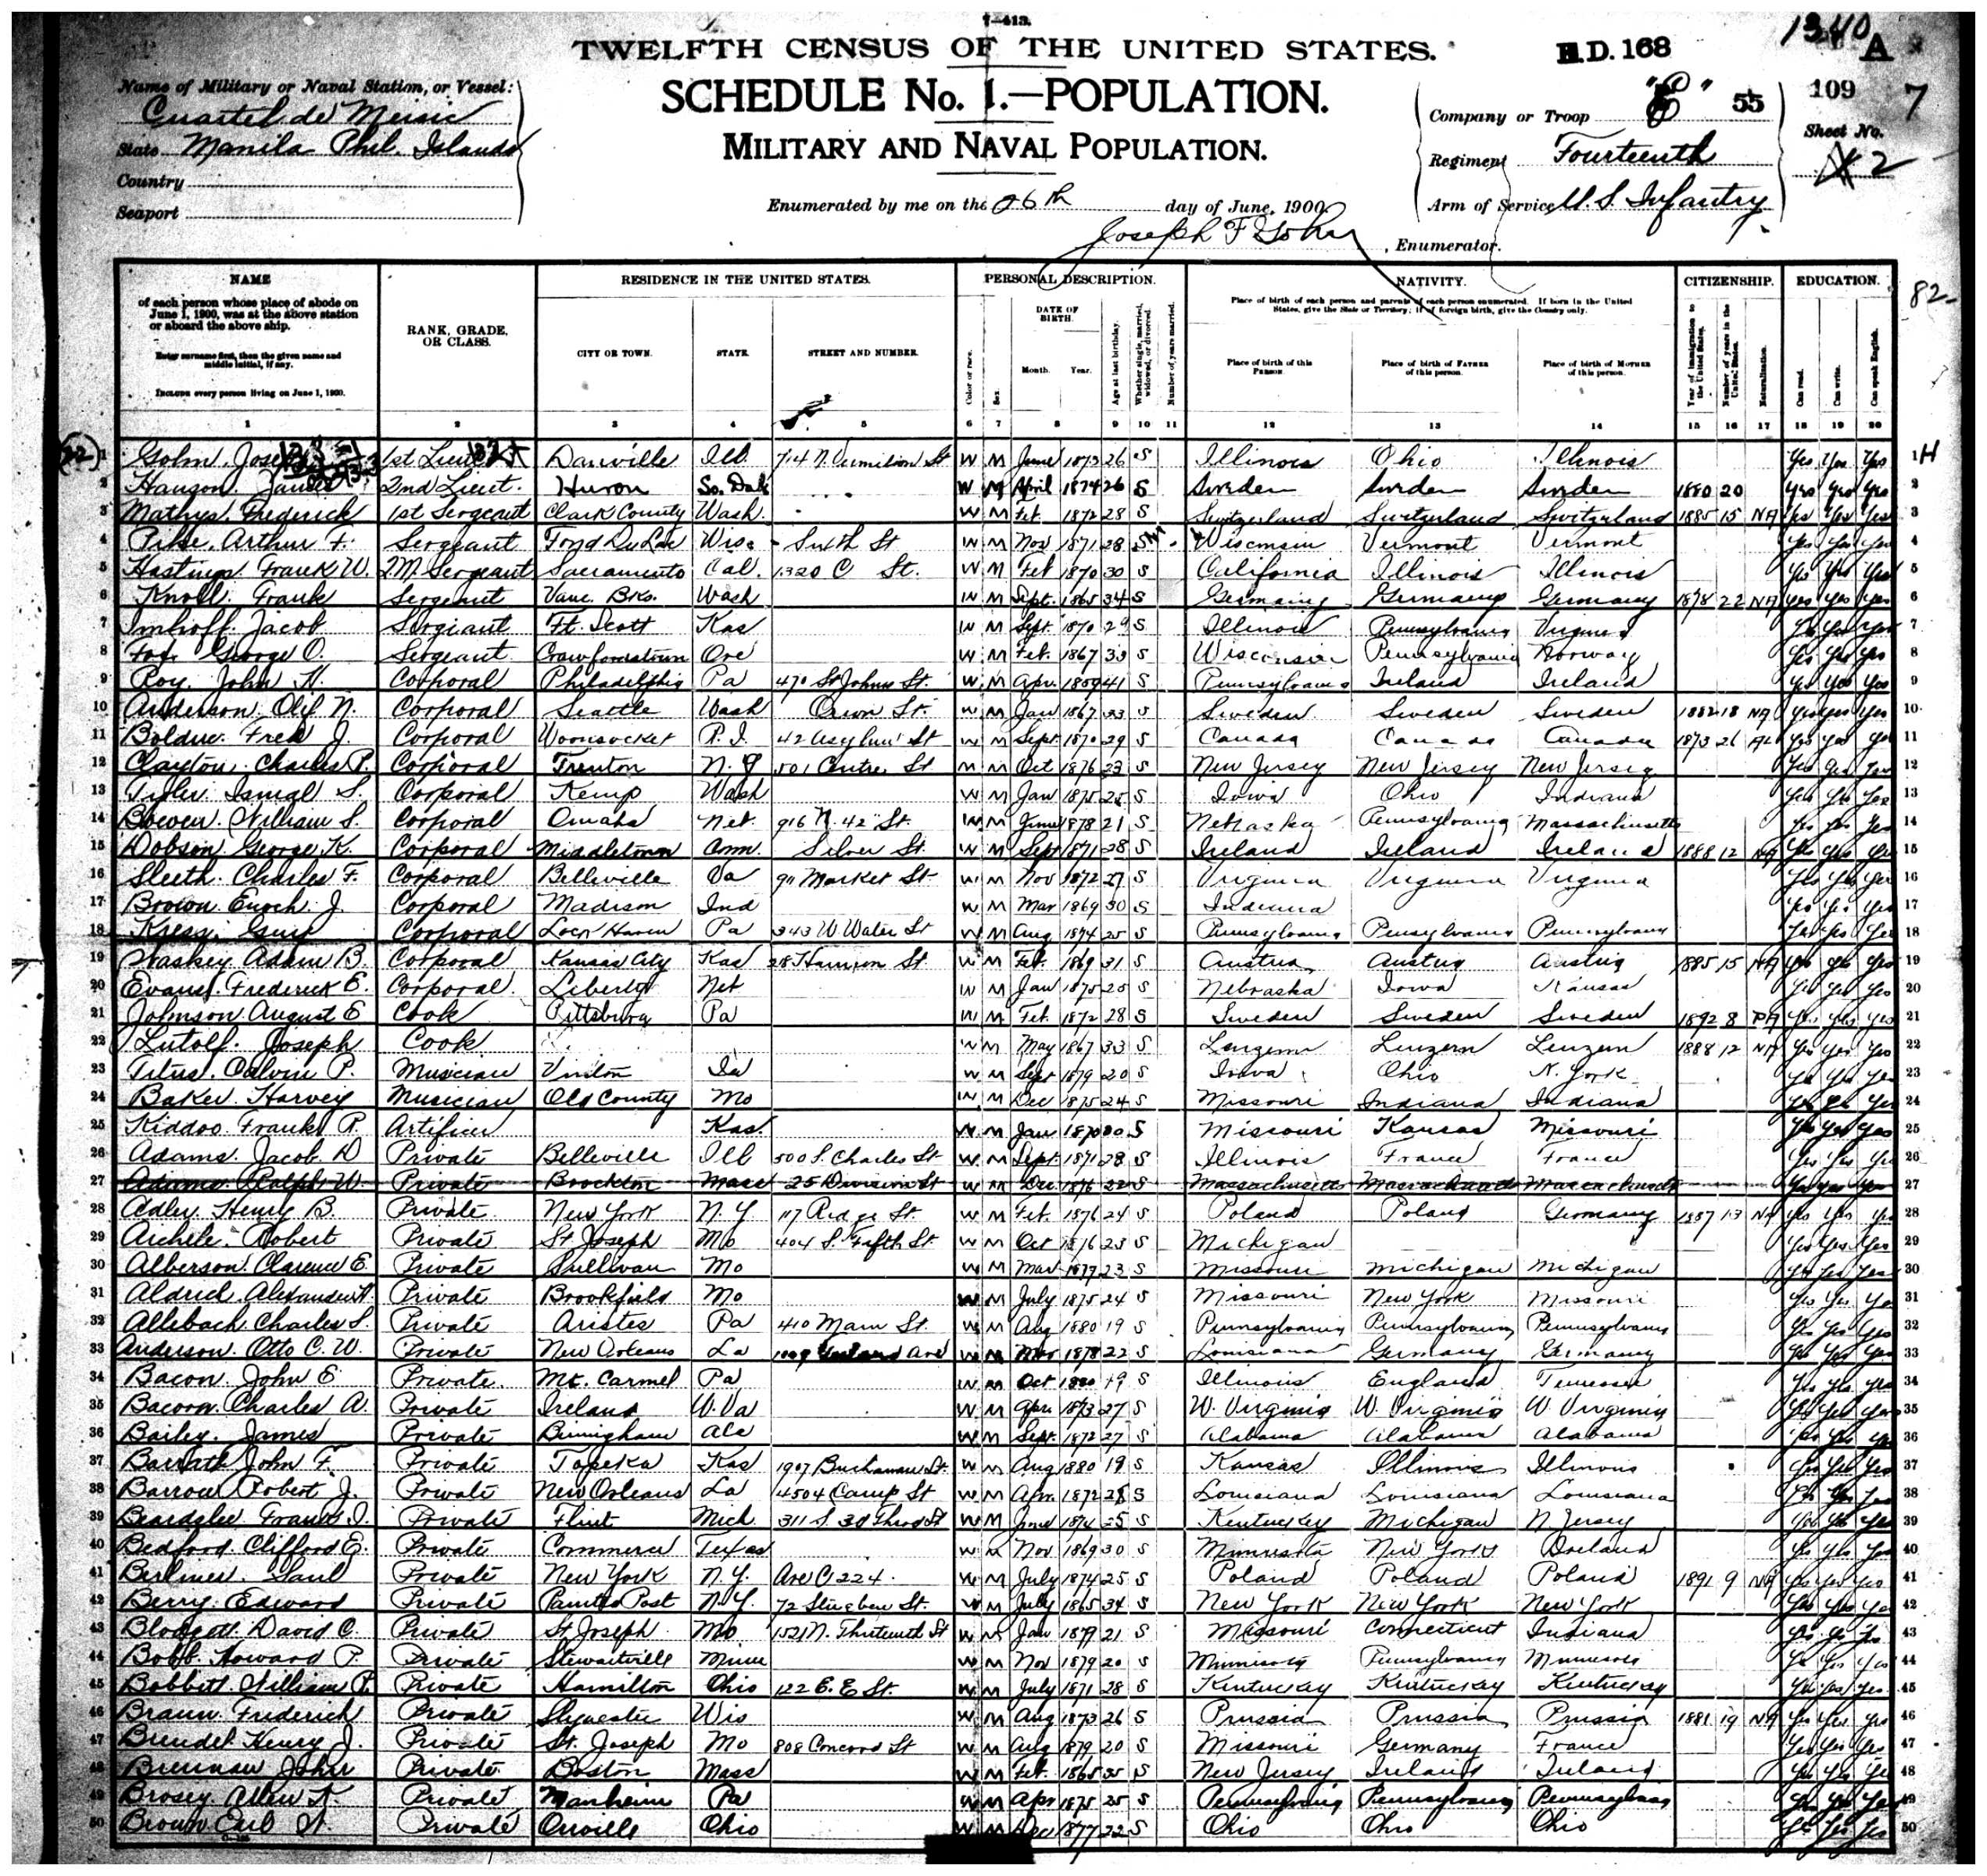 7-413.
1340
TWELFTH CENSUS OF THE UNITED STATES.
E.D. 168
A
SCHEDULE No. 1.—POPULATION.
MILITARY AND NAVAL POPULATION.
Name of Military or Naval Station, or Vessel:
Cuartel de Meisic
State Manila Phil. Islands
Country
Seaport
Company or Troop "E" 55
Regiment Fourteenth
Arm of Service U.S. Infantry
109
7
Sheet No.
2
Enumerated by me on the 26th day of June, 1900.
Joseph F Gohn, Enumerator.
82
NAME
of each person whose place of abode on June 1, 1900, was at the above station or aboard the above ship.
Enter surname first, then the given name and middle initial, if any.
INCLUDE every person living on June 1, 1900.
RANK, GRADE, OR CLASS.
RESIDENCE IN THE UNITED STATES.
CITY OR TOWN.
STATE.
STREET AND NUMBER.
PERSONAL DESCRIPTION.
Color or race.
Sex.
DATE OF BIRTH.
Month.
Year.
Age at last birthday.
Whether single, married, widowed, or divorced.
Number of years married.
NATIVITY.
Place of birth of each person and parents of each person enumerated. If born in the United States, give the State or Territory; if of foreign birth, give the Country only.
Place of birth of this PERSON.
Place of birth of FATHER of this person.
Place of birth of MOTHER of this person.
CITIZENSHIP.
Year of immigration to the United States.
Number of years in the United States.
Naturalization.
EDUCATION.
Can read.
Can write.
Can speak English.
1 2 3 4 5 6 7 8 9 10 11 12 13 14 15 16 17 18 19 20
1 Gohn. Joseph 1st Lieut Danville Ill. 714 N. Vermilion St W M June 1873 26 S Illinois Ohio Illinois Yes Yes Yes 1 H
2 Hanson. 2nd Lieut. Huron So. Dak W M April 1874 26 S Sweden Sweden Sweden 1880 20 Yes Yes Yes 2
3 Mathys. Frederick 1st Sergeant Clark County Wash. W M Feb. 1872 28 S Switzerland Switzerland Switzerland 1885 15 NA Yes Yes Yes 3
4 Pike. Arthur F. Sergeant Fond Du Lac Wisc Sixth St W M Nov 1871 28 S Wisconsin Vermont Vermont Yes Yes Yes 4
5 Hastings. Frank W. QM Sergeant Sacramento Cal. 1320 C St. W M Feb 1870 30 S California Illinois Illinois Yes Yes Yes 5
6 Knoll. Frank Sergeant Vanc. Bks. Wash W M Sept. 1865 34 S Germany Germany Germany 1878 22 NA Yes Yes Yes 6
7 Imhoff. Jacob Sergeant Ft. Scott Kas W M Sept. 1870 29 S Illinois Pennsylvania Virginia Yes Yes Yes 7
8 George O. Sergeant Crawfordstown Ore W M Feb. 1867 33 S Wisconsin Pennsylvania Norway Yes Yes Yes 8
9 Roy. John Corporal Philadelphia Pa 470 St Johns St. W M Apr. 1859 41 S Pennsylvania Ireland Ireland Yes Yes Yes 9
10 Anderson. Olif N. Corporal Seattle Wash Orion St. W M Jan 1867 33 S Sweden Sweden Sweden 1882 18 NA Yes Yes Yes 10
11 Bolduc. Fred J. Corporal Woonsocket R.I. 42 Asylum St W M Sept 1870 29 S Canada Canada Canada 1873 26 AL Yes Yes Yes 11
12 Clayton. Charles P. Corporal Trenton N.J 501 Centre St W M Oct 1876 23 S New Jersey New Jersey New Jersey Yes Yes Yes 12
13 Tyler. S. Corporal Kemp Wash W M Jan 1875 25 S Iowa Ohio Indiana Yes Yes Yes 13
14 Bowen. William S. Corporal Omaha Neb. 916 N. 42" St. W M June 1878 21 S Nebraska Pennsylvania Massachusetts Yes Yes Yes 14
15 Dobson. George K. Corporal Middletown Silver St. W M Sept 1871 28 S Ireland Ireland Ireland 1888 12 NA Yes Yes Yes 15
16 Sleeth. Charles F. Corporal Belleville 911 Market St. W M Nov 1872 27 S Virginia Virginia Virginia Yes Yes Yes 16
17 Brown. Enoch J. Corporal Madison Ind W M Mar 1869 30 S Indiana Yes Yes Yes 17
18 Corporal Lock Haven Pa 343 W Water St W M Aug 1874 25 S Pennsylvania Pensylvania Pennsylvania Yes Yes Yes 18
19 Waskey. Adam B. Corporal Kansas City Kas 28 Harrison St. W M Feb. 1869 31 S Austria Austria Austria 1885 15 NA Yes Yes Yes 19
20 Evans. Frederick E. Corporal. Liberty Neb W M Jan 1875 25 S Nebraska Iowa Kansas Yes Yes Yes 20
21 Johnson. August E Cook Pittsburg Pa W M Feb. 1872 28 S Sweden Sweden Sweden 1892 8 PA Yes Yes Yes 21
22 Lutolf. Joseph Cook W M May 1867 33 S Luzern Luzern 1888 12 NA Yes Yes Yes 22
23 Titus. Calvin P. Musician Vinton Ia W M Sept 1879 20 S Iowa Ohio N. York Yes Yes Yes 23
24 Baker. Harvey Musician Old County Mo W M Dec 1875 24 S Missouri Indiana Indiana Yes Yes Yes 24
25 Kiddoo. Frank P. Artificer Kas. W M Jan 1870 30 S Missouri Kansas Missouri Yes Yes Yes 25
26 Adams. Jacob D Private Belleville Ill 500 S. Charles St. W M Sept 1871 28 S Illinois France France Yes Yes Yes 26
27 Adams. Ralph W. Private Brockton Mass 25 Division St W M Dec 1876 22 S Massachusetts Massachusetts Massachusetts Yes Yes Yes 27
28 Adler. Henry B. Private New York N.Y 117 Ridge St. W M Feb. 1876 24 S Poland Poland Germany 1887 13 NA Yes Yes Yes 28
29 Aichele. Robert Private St Joseph Mo 404 S. Fifth St. W M Oct 1876 23 S Michigan Yes Yes Yes 29
30 Alberson. Clarence E. Private Sullivan Mo W M Mar 1877 23 S Missouri Michigan Michigan Yes Yes Yes 30
31 Aldrich. Alexander Private Brookfield Mo W M July 1875 24 S Missouri New York Missouri Yes Yes Yes 31
32 Allebach. Charles S. Private Aristes Pa 410 Main St. W M Aug 1880 19 S Pennsylvania Pennsylvania Pennsylvania Yes Yes Yes 32
33 Anderson. Otto C. W. Private New Orleans La W M 1878 22 S Louisiana Germany Germany Yes Yes Yes 33
34 Bacon. John E. Private. Mt. Carmel Pa W M Oct 1880 19 S Illinois England Tennessee Yes Yes Yes 34
35 Charles A. Private Ireland W. Va W M Apr 1873 27 S W. Virginia W. Virginia W Virginia Yes Yes Yes 35
36 Bailey. James Private Birmingham Ala W M Sept. 1872 27 S Alabama Alabama Alabama Yes Yes Yes 36
37 John F. Private Topeka Kas 1907 Buchanan St. W M Aug 1880 19 S Kansas Illinois Illinois Yes Yes Yes 37
38 Barrow Robert J. Private New Orleans La 4504 Camp St W M Apr. 1872 28 S Louisiana Louisiana Louisiana Yes Yes Yes 38
39 Beardslee Francis I. Private Flint Mich W M June 1874 25 S Kentucky Michigan N. Jersey Yes Yes Yes 39
40 Bedford. Clifford E. Private Commerce Texas W M Nov 1869 30 S Minnesota New York Yes Yes Yes 40
41 Berliner. Saul Private New York N.Y. Ave C 224. W M July 1874 25 S Poland Poland Poland 1891 9 NA Yes Yes Yes 41
42 Berry. Edward Private Painted Post N.Y. 72 Steuben St. W M July 1865 34 S New York New York New York Yes Yes Yes 42
43 Blodgett. David C. Private St Joseph Mo 1521 N. Thirteenth St W M Jan 1879 21 S Missouri Connecticut Indiana Yes Yes Yes 43
44 Bobb. Howard P. Private Stewartville Minn W M Nov 1879 20 S Minnesota Pennsylvania Minnesota Yes Yes Yes 44
45 Bobbitt. William P. Private Hamilton Ohio 122 E. E St. W M July 1871 28 S Kentuckay Kentuckay Kentuckay Yes Yes Yes 45
46 Braun. Frederick Private Wis W M Aug 1873 26 S Prussia Prussia Prussia 1881 19 NA Yes Yes Yes 46
47 Brendel. Henry J. Private St. Joseph Mo 808 Concord St W M Aug 1879 20 S Missouri Germany France Yes Yes Yes 47
48 Brennan John Private Boston Mass W M Feb. 1865 35 S New Jersey Ireland Ireland Yes Yes Yes 48
49 Brosey. Allen K. Private Manheim Pa W M Apr 1875 25 S Pennsylvania Pennsylvania Pennsylvania Yes Yes Yes 49
50 Brown Earl Private Orville Ohio W M Dec 1877 22 S Ohio Ohio Ohio Yes Yes Yes 50